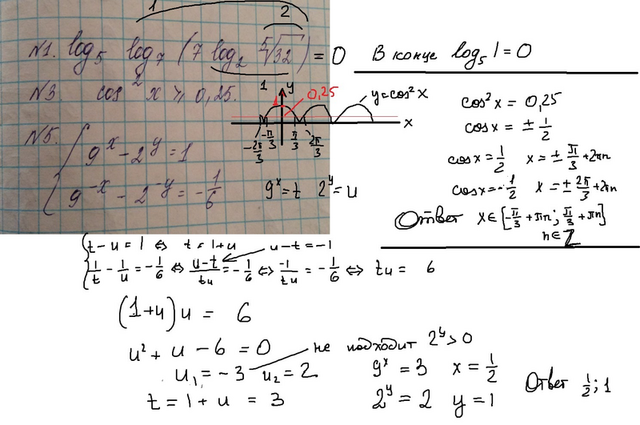 1
2
N1. log₅ log₇ (7 log₂ ⁵√32) = 0 В конце log₅ 1 = 0
N3 cos² x ≥ 0,25.
1 y 0,25 y = cos² x
x
-2π/3 -π/3 π/3 2π/3
cos² x = 0,25
cos x = ± 1/2
cos x = 1/2 x = ± π/3 + 2πn
cos x = -1/2 x = ± 2π/3 + 2πn
Ответ x ∈ [-π/3 + πn; π/3 + πn]
n ∈ Z
N5. { 9^x - 2^y = 1
9^-x - 2^-y = -1/6 9^x = t 2^y = u
{ t - u = 1 ⇔ t = 1 + u u - t = -1
1/t - 1/u = -1/6 ⇔ (u-t)/tu = -1/6 ⇔ -1/tu = -1/6 ⇔ tu = 6
(1+u) u = 6
u² + u - 6 = 0 не подходит 2^y > 0
u₁ = -3 u₂ = 2
t = 1 + u = 3
9^x = 3 x = 1/2
2^y = 2 y = 1
Ответ 1/2; 1